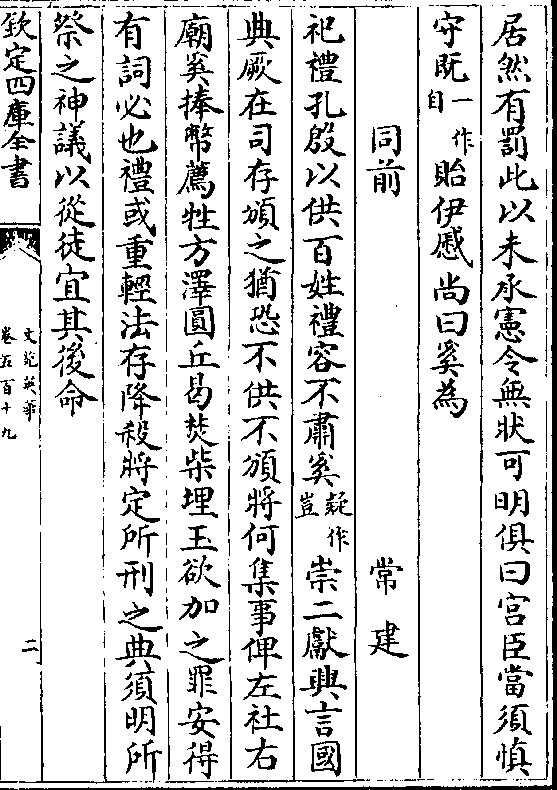 居然有罰此以未承憲令無狀可明俱曰宫臣當須慎
守既一作自貽伊慼尚曰奚為
同前 常建
祀禮孔殷以供百姓禮容不肅奚疑作豈崇二獻興言國
典厥在司存頒之猶恐不供不頒將何集事俾左社右
廟奚捧幣薦牲方澤圓丘曷焚柴埋玉欲加之罪安得
有詞必也禮或重輕法存降殺將定所刑之典須明所
祭之神議以從徒宜其後命
欽定四庫全書
文苑英華
卷五百十九
二